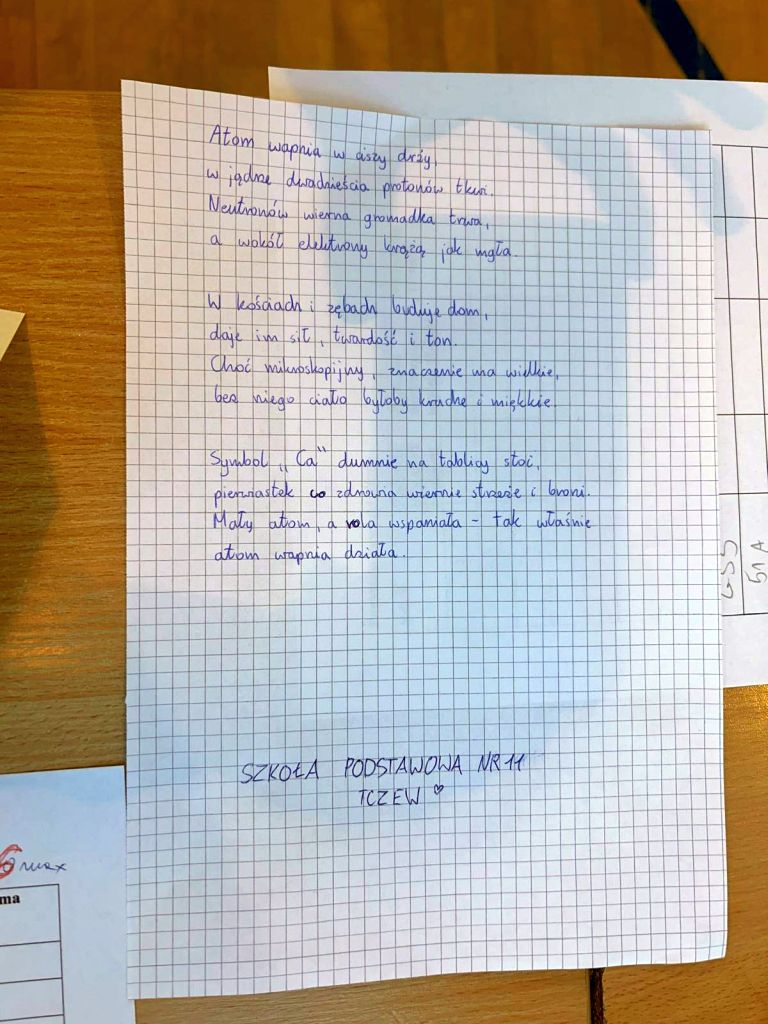 Atom wapnia w ciszy drży,
w jądrze dwadzieścia protonów tkwi.
Neutronów wierna gromadka trwa,
a wokół elektrony krążą jak mgła.
W kościach i zębach buduje dom,
daje im sił, twardość i ton.
Choć mikroskopijny, znaczenie ma wielkie,
bez niego ciało byłoby kruche i miękkie.
Symbol „Ca" dumnie na tablicy stoi,
pierwiastek co zdrowia wiernie strzeże i broni.
Mały atom, a rola wspaniała – tak właśnie
atom wapnia działa.
SZKOŁA PODSTAWOWA NR 11
TCZEW ♡
6 max
ma
51 A